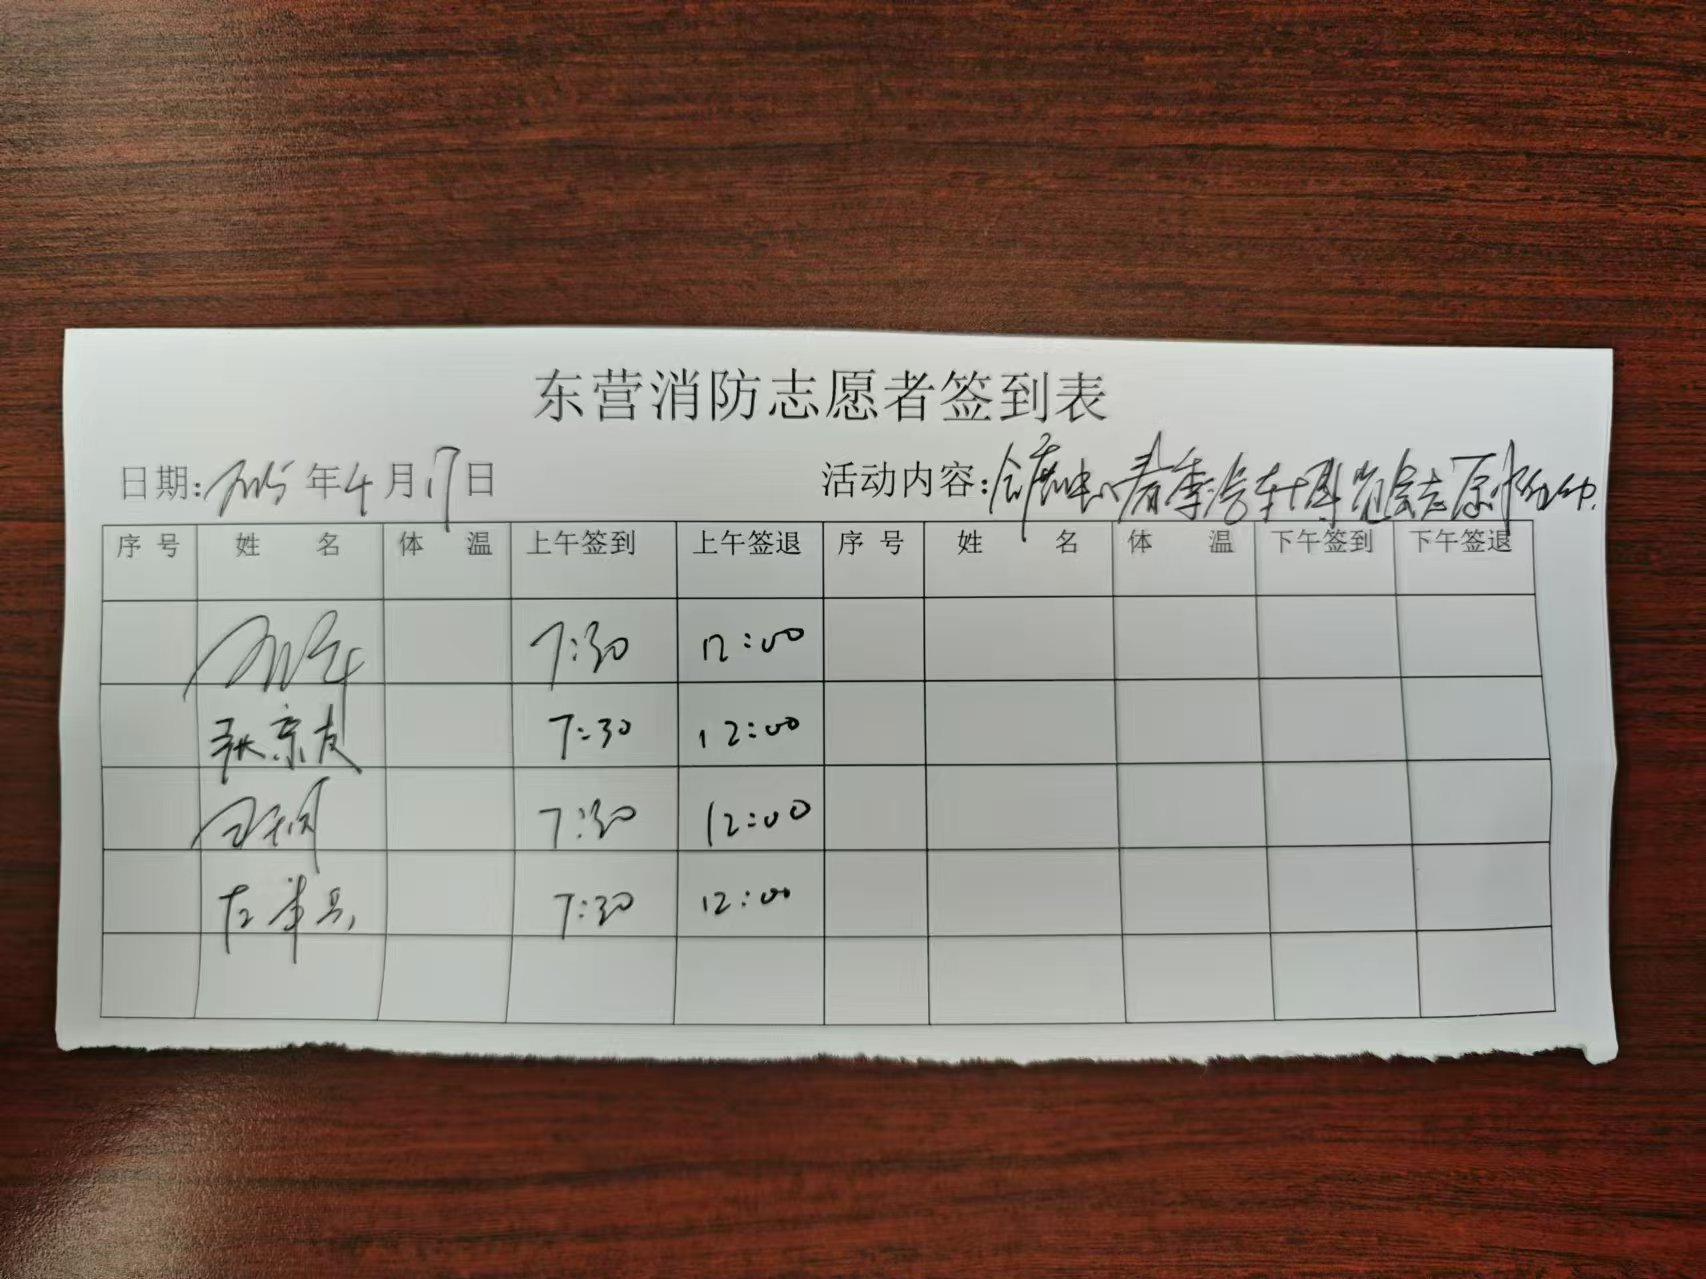 东营消防志愿者签到表
日期:2025年4月17日 活动内容:会展中心春季汽车博览会志愿
序号 姓名 体温 上午签到 上午签退 序号 姓名 体温 下午签到 下午签退
7:30 12:00
张京友 7:30 12:00
7:30 12:00
7:30 12:00